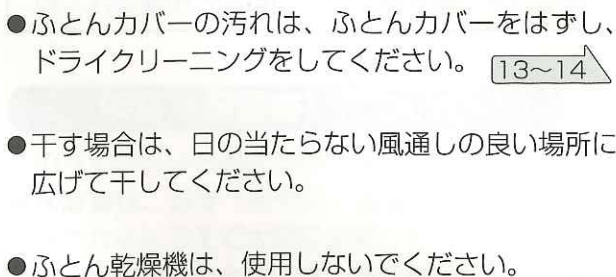 ●ふとんカバーの汚れは、ふとんカバーをはずし、
ドライクリーニングをしてください。 13~14
●干す場合は、日の当たらない風通しの良い場所に
広げて干してください。
●ふとん乾燥機は、使用しないでください。